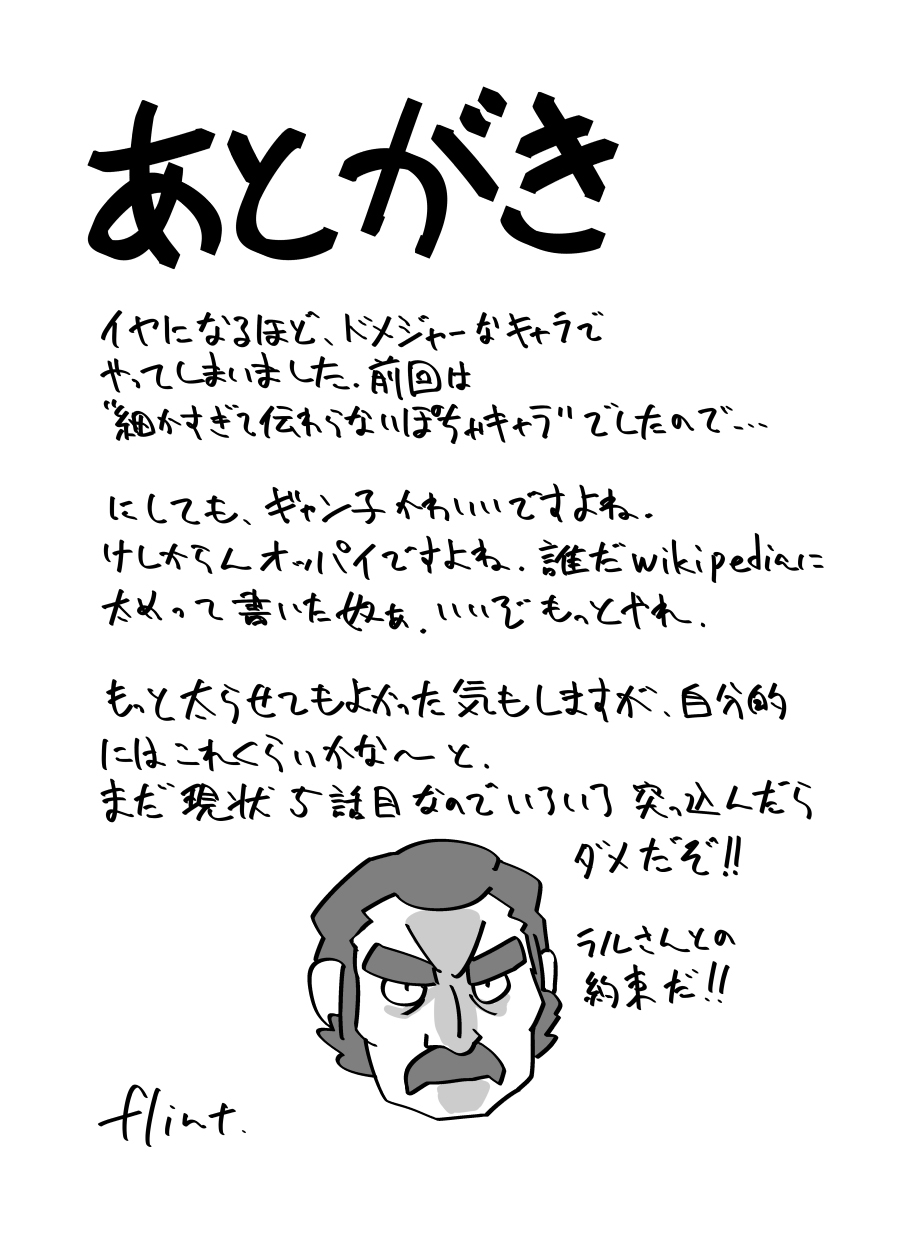 あとがき
イヤになるほど、ドメジャーなキャラで
やってしまいました.前回は
“細かすぎて伝わらないぽちゃキャラ”でしたので…
にしても、ギャン子かわいいですよね.
けしからんオッパイですよね.誰だwikipediaに
太めって書いた奴ぁ.いいぞもっとやれ.
もっと太らせてもよかった気もしますが、自分的
にはこれくらいかな〜と.
まだ現状5話目なのでいろいろ突っ込んだら
ダメだぞ!!
ラルさんとの
約束だ!!
flint.